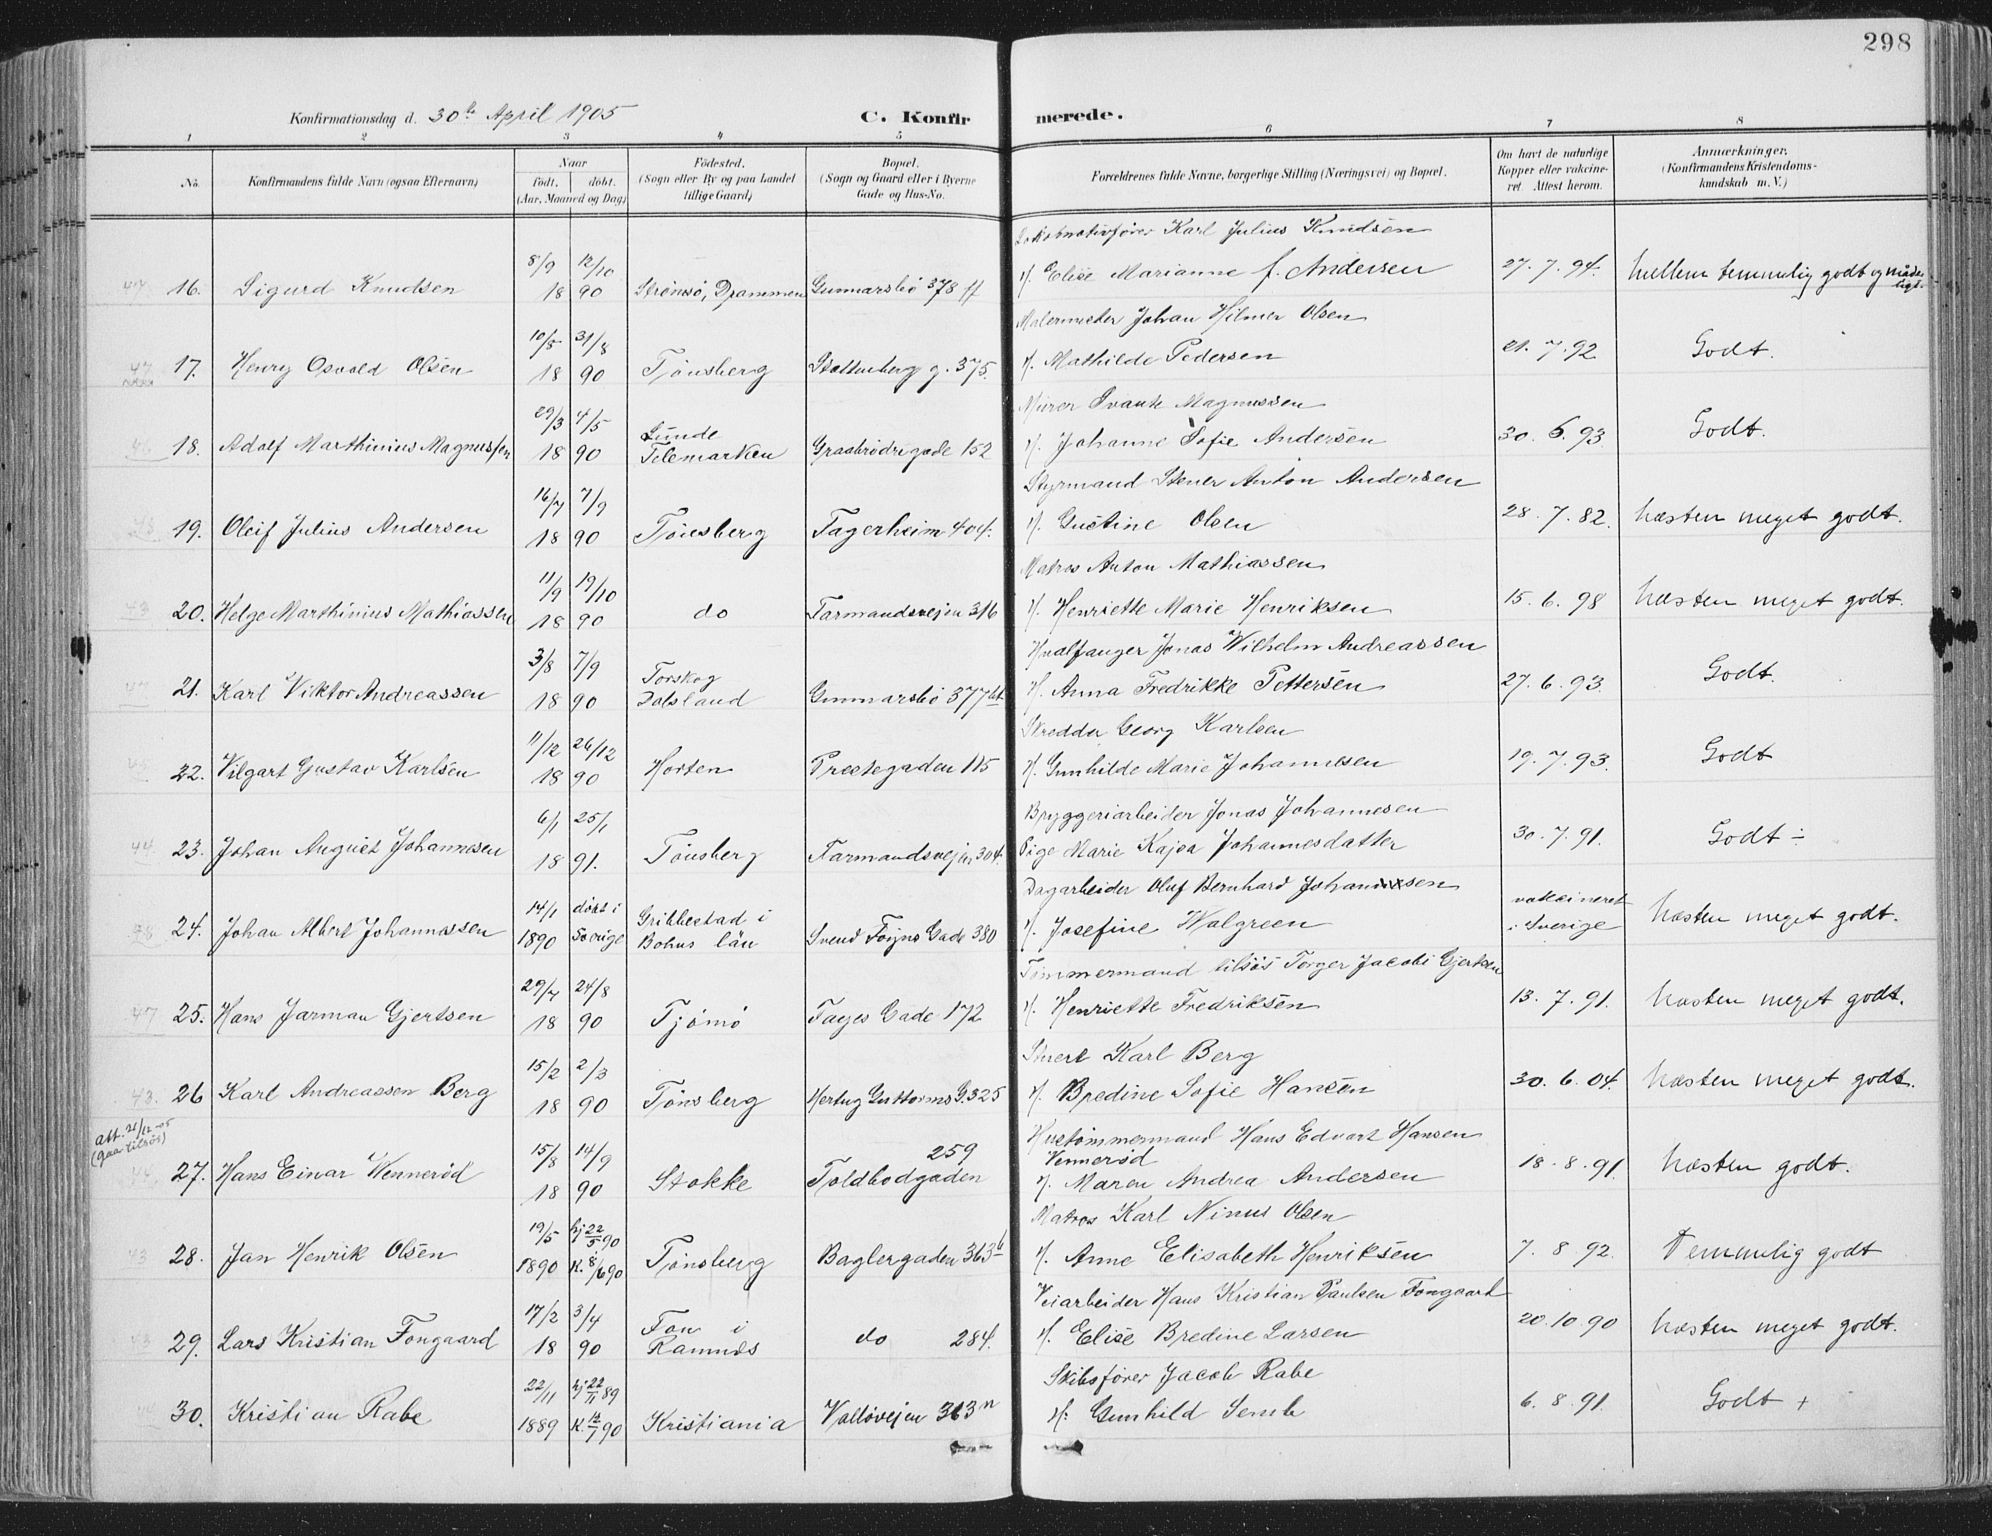 298
Konfirmationsdag d. 30te April 1905
C. Konfir merede.
1 2 3 4 5 6 7 8
No. Konfirmandens fulde Navn (ogsaa Efternavn) Naar født. døbt. (Aar, Maaned og Dag) Fødested. (Sogn eller By og paa Landet tillige Gaard) Bopæl. (Sogn og Gaard eller i Byerne Gade og Hus-No. Forældrenes fulde Navne, borgerlige Stilling (Næringsvei) og Bopæl. Om havt de naturlige Kopper eller vakcineret. Attest herom. Anmærkninger. (Konfirmandens Kristendomskundskab m. V.)
Lokomotivfører Karl Julius Knudsen
16. Sigurd Knudsen 8/9 12/10 18 90 Strømsø, Drammen Gunnarsbø 378 ff H. Elise Marianne f. Andersen 27.7.94. mellem temmelig godt og mådeligt.
Malermester Johan Hilmer Olsen
17. Henry Osvald Olsen 10/5 31/8 18 90 Tønsberg Stoltenberg g. 375. H. Mathilde Pedersen 21.7.92 Godt.
Murer Svante Magnussen
18. Adolf Marthinius Magnussen 29/3 4/5 18 90 Lunde Telemarken Graabrødregade 152 H. Johanne Sofie Andersen 30.6.93 Godt.
Styrmand Stener Anton Andersen
19. Oleif Julius Andersen 16/7 7/9 18 90 Tønsberg Fagerheim 404. H. Gustine Olsen 28.7.82. Næsten meget godt.
Matros Anton Mathiassen
20. Helge Marthinius Mathiassen 11/9 19/10 18 90 do Farmandsvejen 316 H. Henriette Marie Henriksen 15.6.98 Næsten meget godt.
Hvalfanger Jonas Wilhelm Andreassen
21. Karl Viktor Andreassen 3/8 7/9 18 90 Torskog Dalsland Gunnarsbø 377 H. Anna Fredrikke Pettersen 27.6.93. Godt.
Skredder Georg Karlsen
22. Vilgart Gustav Karlsen 11/12 26/12 18 90 Horten Prestegaden 115 H. Gunhilde Marie Johannesen 19.7.93. Godt
Bryggeriarbeider Jonas Johannesen
23. Johan August Johannesen 6/1 25/1 18 91. Tønsberg Farmandsvejen 304. Pige Marie Kajsa Johannesdatter 30.7.91. Godt ÷
Dagarbeider Oluf Bernhard Johannessen
24. Johan Albert Johannessen 14/1 1890 døbt i Sverige Gribbestad i Bohus län Svend Foyns Gade 380 H. Josefine Walgreen vakcineret i Sverige Næsten meget godt.
Tømmermand tilsøs Torger Jacobi Gjertsen
25. Hans Jarman Gjertsen 29/7 24/8 18 90 Tjømø Fayes Gade 172 H. Henriette Fredriksen 13.7.91. Næsten meget godt.
Stuert Karl Berg
26 Karl Andreassen Berg 15/2 2/3 18 90 Tønsberg Hertug Guttorms G. 325 H. Bredine Sofie Hansen 30.6.04. Næsten meget godt.
att. 21/12-05 (gaar tilsøs)
Hustømmermand Hans Edvart Hansen Vennerød
27. Hans Einar Wennerød 15/8 14/9 18 90 Stokke Toldbodgaden 259 H. Maren Andrea Andersen 18.8.91. Næsten godt.
Matros Karl Ninus Olsen
28. Jan Henrik Olsen 19/5 1890 hj 22/5 90 K. 8/6 90 Tønsberg Baglergaden 363 b H. Anne Elisabeth Henriksen 7.8 92. Temmelig godt
Veiarbeider Hans Kristian Paulsen Fongaard
29. Lars Kristian Fongaard 17/2 3/4 18 90 Fon i Ramnes do 284. H. Elise Bredine Larsen 20.10.90 Næsten meget godt.
Skibsfører Jacob Rabe
30. Kristian Rabe 22/11 1889 hj 22/11 89 K. 90 Kristiania Valløvejen 363 n H. Gunhild Semb 6.8.91. Godt +